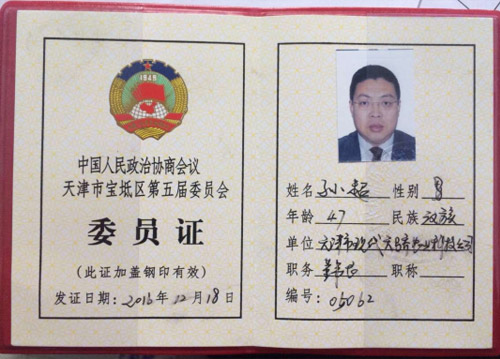 1949
中国人民政治协商会议
天津市宝坻区第五届委员会
委员证
(此证加盖钢印有效)
发证日期: 2016年12月18日
姓名 孙小超 性别 男
年龄 47 民族 汉族
单位 天津市现代天骄农业科技公司
职务 董事长 职称
编号: 05062